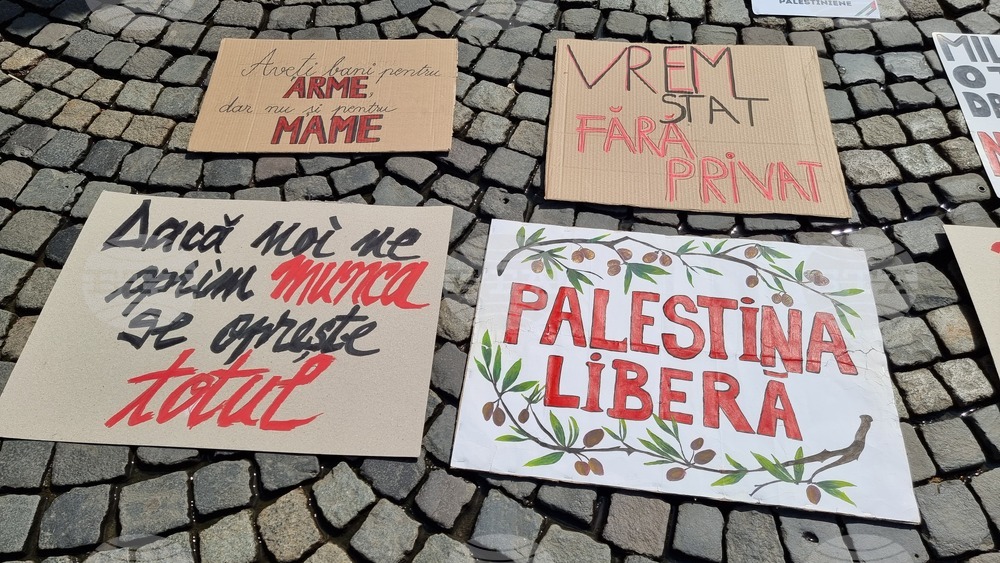 PALESTINIENE
Aveți bani pentru
ARME,
dar nu și pentru
MAME
VREM
STAT
FĂRĂ
PRIVAT
MIL
O T
DE
N
Dacă noi ne
oprim munca
se oprește
totul
PALESTINA
LIBERĂ